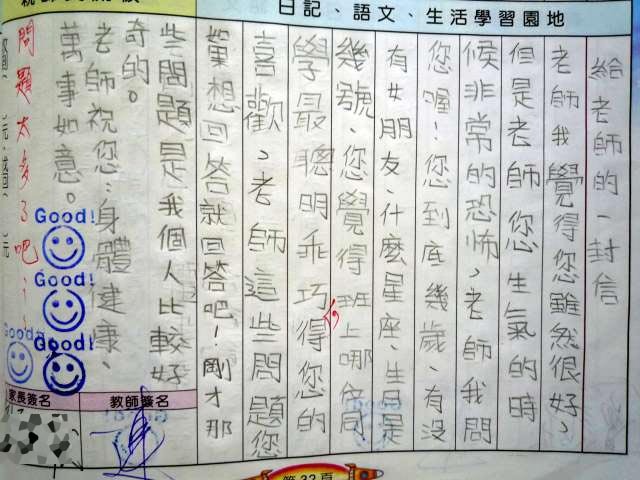 日記、語文、生活學習園地
給老師的一封信
老師我覺得您雖然很好，
但是老師您生氣的時
候非常的恐怖，老師我問
您喔！您到底幾歲、有沒
有女朋友、什麼星座、生日是
幾號、您覺得班上哪位同
學最聰明乖巧得您的
喜歡，老師這些問題您
想回答就回答吧！剛才那
些問題是我個人比較好
奇的。
老師祝您：身體健康、
萬事如意。
問題太多了吧
Good!
Good!
Good!
Good!
教師簽名
家長簽名
第32頁